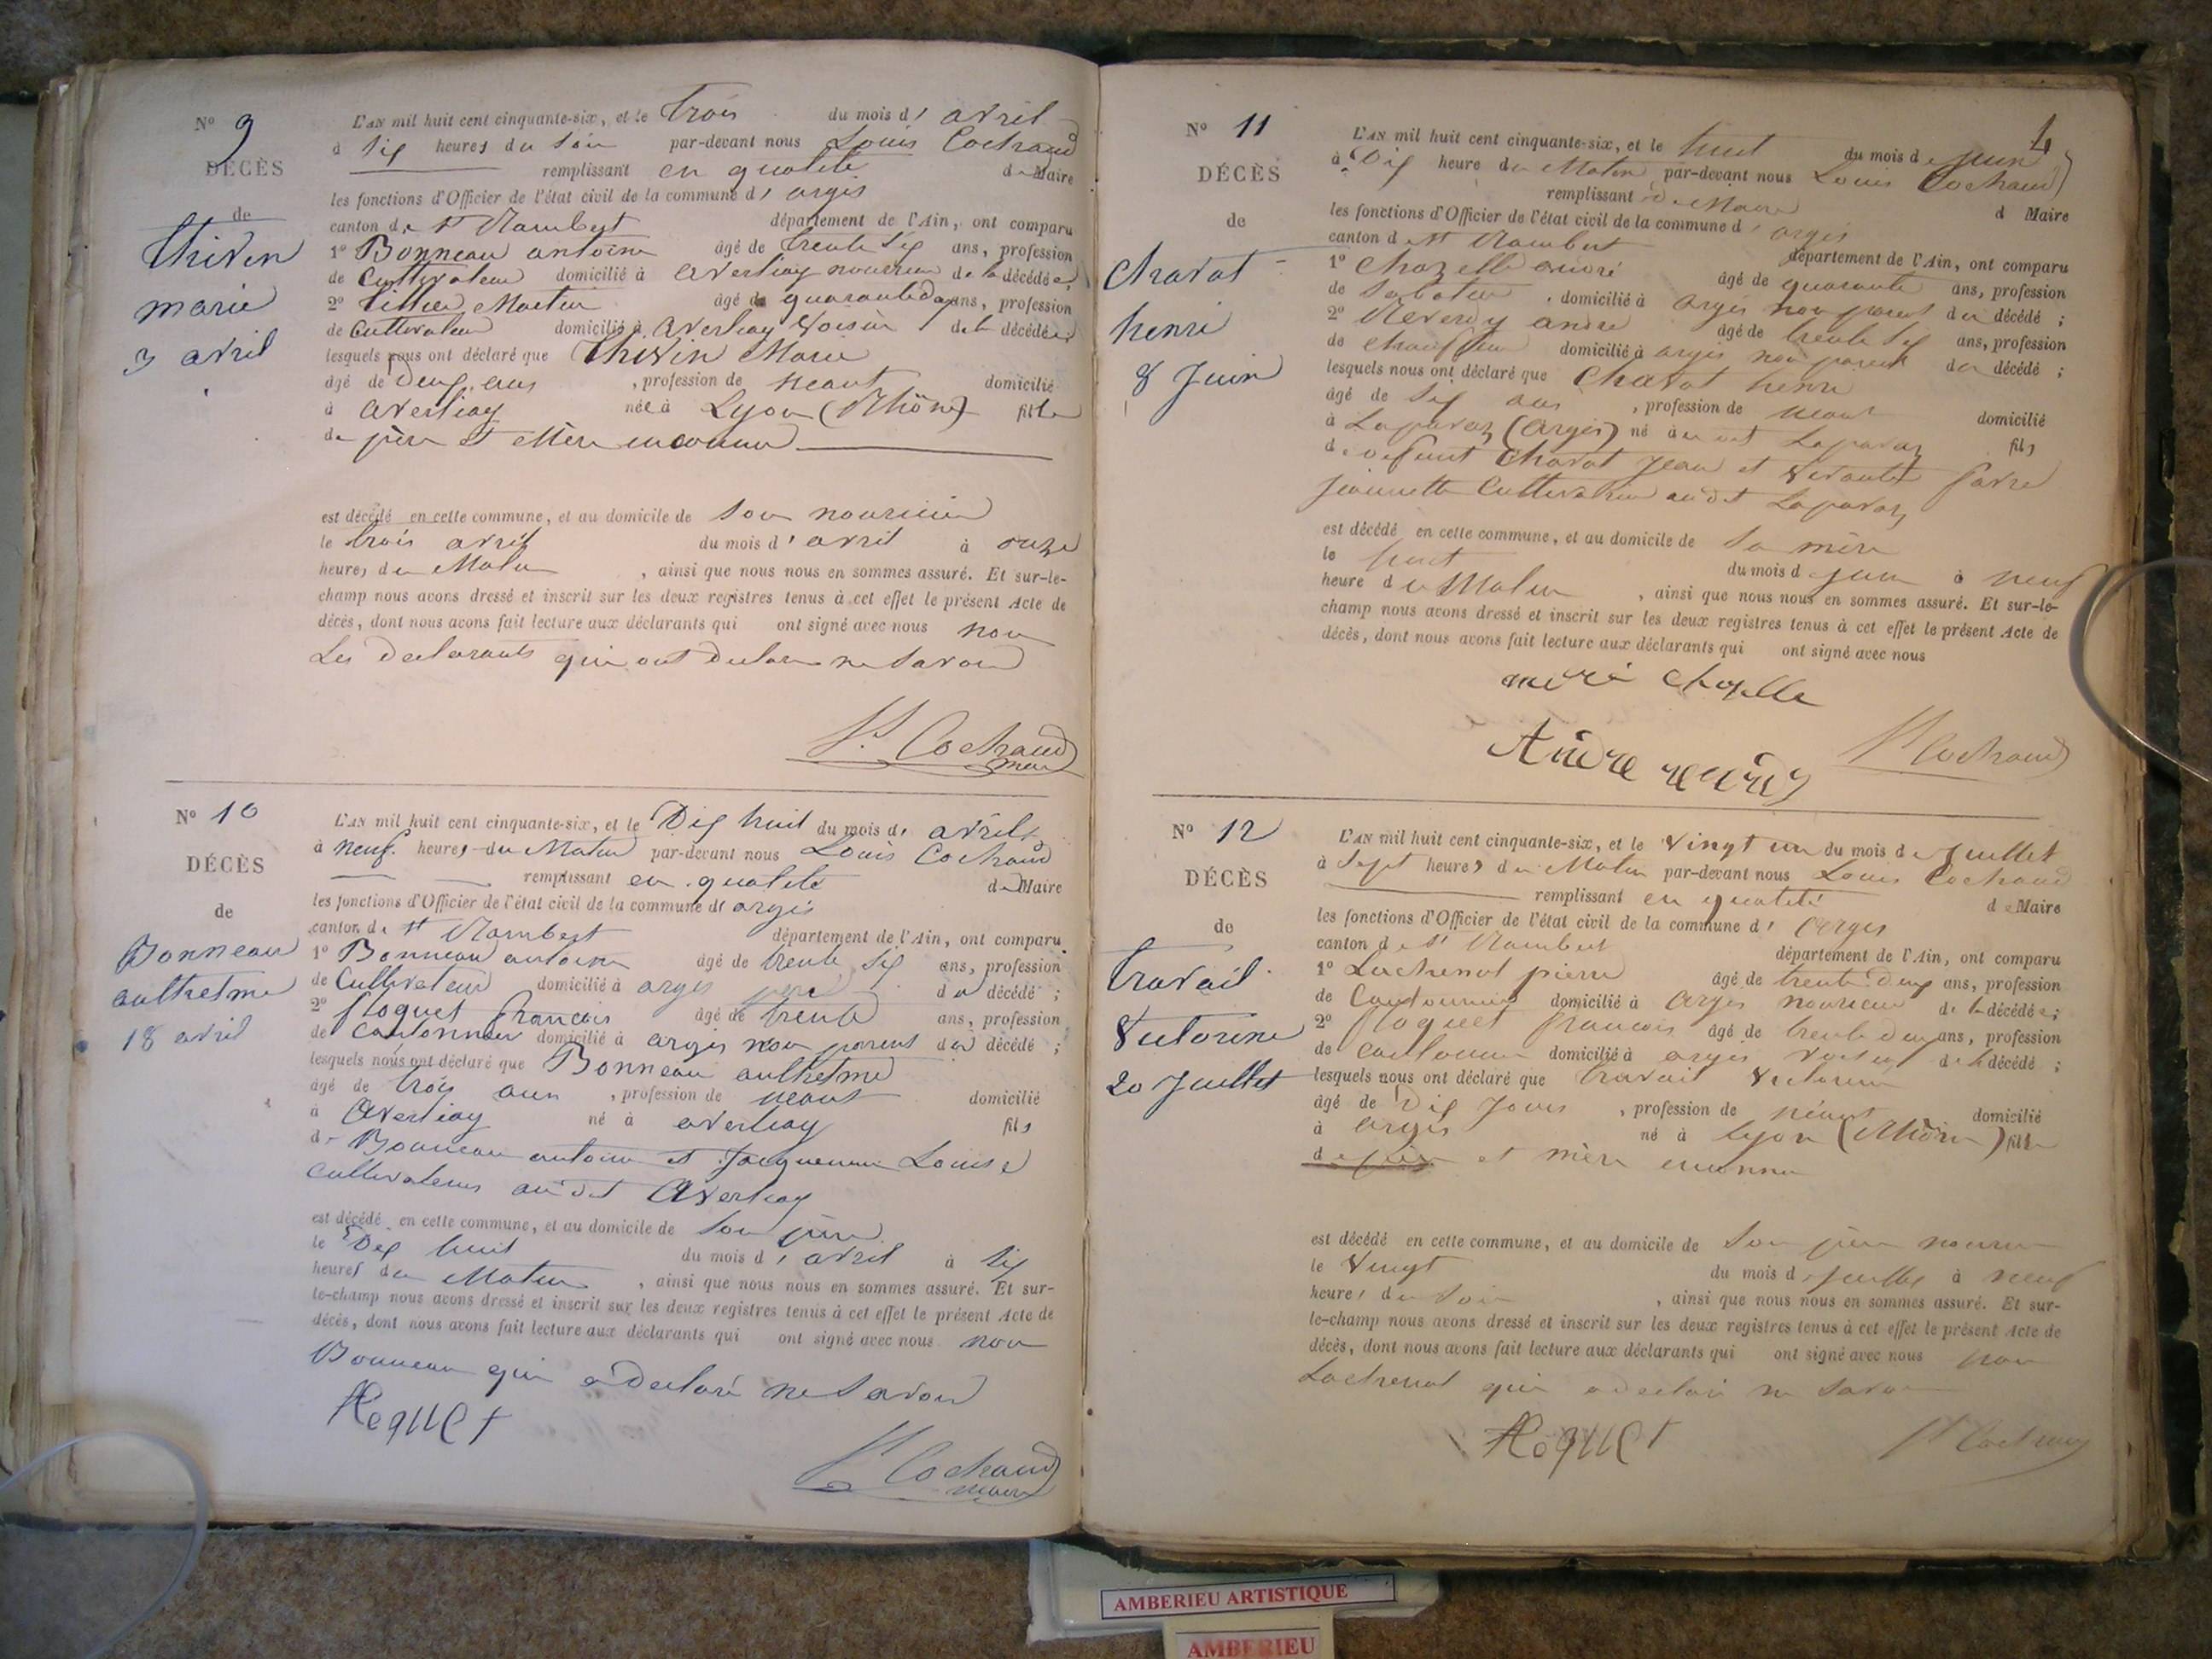 N° 9
DÉCÈS
de
Thivin
marie
3 avril
L'AN mil huit cent cinquante-six, et le trois du mois d' avril
à six heures du soir par-devant nous Louis Cochaud
remplissant en qualité de Maire
les fonctions d'Officier de l'état civil de la commune d' argis
canton de st Rambert département de l'Ain, ont comparu
1° Bonneau antoine âgé de trente six ans, profession
de Cultivateur domicilié à averliay nourricier de la décédée;
2° Martin âgé de quarante ans, profession
de Cultivateur domicilié à averliay voisin de la décédée;
lesquels nous ont déclaré que Thivin Marie
âgé de Deux ans , profession de neant domicilié
à averliay née à Lyon (Rhône) fille
de père et Mère inconnu
est décédé en cette commune, et au domicile de son nourricier
le trois avril du mois d' avril à onze
heures du Matin , ainsi que nous nous en sommes assuré. Et sur-le-
champ nous avons dressé et inscrit sur les deux registres tenus à cet effet le présent Acte de
décès, dont nous avons fait lecture aux déclarants qui ont signé avec nous non
Les declarants qui ont declaré ne Savoir
Ls Cochaud
maire
N° 10
DÉCÈS
de
Bonneau
anthelme
18 avril
L'AN mil huit cent cinquante-six, et le Dix huit du mois d' avril
à neuf heures du Matin par-devant nous Louis Cochaud
remplissant en qualité de Maire
les fonctions d'Officier de l'état civil de la commune d' argis
canton de st Rambert département de l'Ain, ont comparu
1° Bonneau antoine âgé de trente six ans, profession
de Cultivateur domicilié à argis père du décédé ;
2° floquet francois âgé de trente ans, profession
de cantonnier domicilié à argis non parent du décédé ;
lesquels nous ont déclaré que Bonneau anthelme
âgé de trois ans , profession de neant domicilié
à Averliay né à averliay fils
de Bonneau antoine et Jacquemin Louise
cultivateurs au dit Averliay
est décédé en cette commune, et au domicile de son père
le Dix huit du mois d' avril à six
heures du Matin , ainsi que nous nous en sommes assuré. Et sur-
le-champ nous avons dressé et inscrit sur les deux registres tenus à cet effet le présent Acte de
décès, dont nous avons fait lecture aux déclarants qui ont signé avec nous non
Bonneau qui a declaré ne Savoir
floquet
Ls Cochaud
maire
4
N° 11
DÉCÈS
de
Chavat
henri
8 Juin
L'AN mil huit cent cinquante-six, et le huit du mois de juin
à Dix heure du Matin par-devant nous Louis Cochaud
remplissant de Maire d Maire
les fonctions d'Officier de l'état civil de la commune d' argis
canton de st Rambert département de l'Ain, ont comparu
1° Chazelle andré âgé de quarante ans, profession
de Sabotier , domicilié à argis non parent du décédé ;
2° Reverdy andre âgé de trente six ans, profession
de domicilié à argis non parent du décédé ;
lesquels nous ont déclaré que Chavat henri
âgé de six ans , profession de neant domicilié
à Laparaz (argis) né au dit Laparaz fils
de defunt Chavat Jean et vivante favre
jeannette Cultivatrice au dit Laparaz
est décédé en cette commune, et au domicile de sa mère
le huit du mois de juin à neuf
heure du Matin , ainsi que nous nous en sommes assuré. Et sur-le-
champ nous avons dressé et inscrit sur les deux registres tenus à cet effet le présent Acte de
décès, dont nous avons fait lecture aux déclarants qui ont signé avec nous
andré chazelle
Andre reverdy
Ls Cochaud
N° 12
DÉCÈS
de
travail
Victorine
20 Juillet
L'AN mil huit cent cinquante-six, et le vingt un du mois de Juillet
à sept heures du Matin par-devant nous Louis Cochaud
remplissant en qualité de Maire
les fonctions d'Officier de l'état civil de la commune d' argis
canton de st Rambert département de l'Ain, ont comparu
1° Lachenal pierre âgé de trente deux ans, profession
de Cantonnier domicilié à argis nourricier de la décédée;
2° floquet francois âgé de trente deux ans, profession
de cantonnier domicilié à argis voisin de la décédé ;
lesquels nous ont déclaré que travail Victorine
âgé de Dix Jours , profession de néant domicilié
à argis né à lyon (Rhône) fille
de père et mère inconnu
est décédé en cette commune, et au domicile de son père nourricier
le vingt du mois de juillet à neuf
heures du soir , ainsi que nous nous en sommes assuré. Et sur-
le-champ nous avons dressé et inscrit sur les deux registres tenus à cet effet le présent Acte de
décès, dont nous avons fait lecture aux déclarants qui ont signé avec nous non
Lachenal qui a declaré ne savoir
floquet
Ls Cochaud
AMBERIEU ARTISTIQUE
AMBERIEU